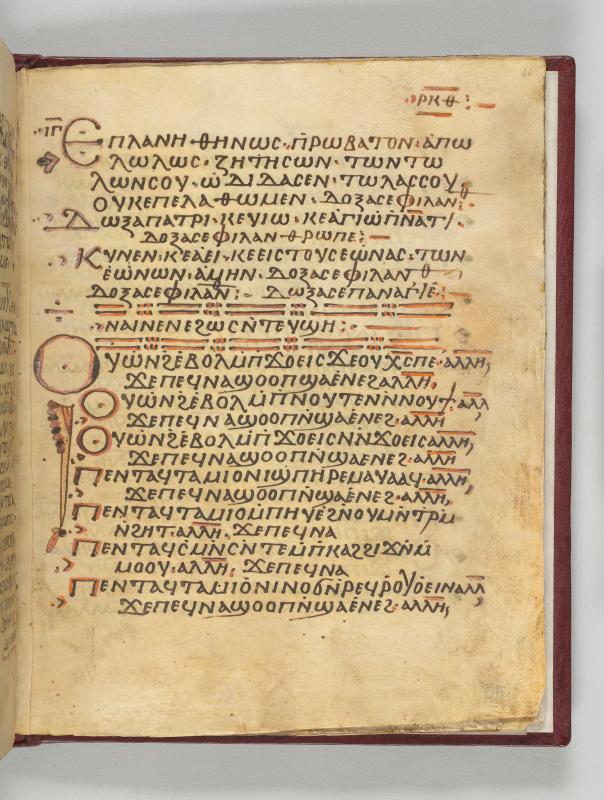 ⲣⲕⲑ
ⲓⲅ ⲉⲡⲗⲁⲛⲏⲑⲏⲛⲱⲥ·ⲡ̅ⲣⲱⲃⲁⲧⲟⲛ·ⲁⲡⲱ
ⲗⲱⲗⲱⲥ·ⲍⲏⲧⲏⲥⲱⲛ·ⲧⲱⲛⲧⲱ
ⲗⲱⲛⲥⲟⲩ·ⲱⲇⲓⲇⲁⲥⲉⲛ·ⲧⲱⲗⲁⲥⲥⲟⲩ
ⲟⲩⲕⲉⲡⲉⲗⲁⲑⲱⲙⲉⲛ·ⲇⲟⲝⲁⲥⲉⲫⲓⲗⲁⲛⲑ
ⲇⲱⲝⲁⲡⲁⲧⲣⲓ·ⲕⲉⲩⲓⲱ·ⲕⲉⲁⲅⲓⲱⲡ̅ⲛ̅ⲁⲧⲓ
ⲇⲟⲝⲁⲥⲉⲫⲓⲗⲁⲛⲑⲣⲱⲡⲉ:—
ⲕⲩⲛⲉⲛ·ⲕⲉⲁⲉⲓ·ⲕⲉⲉⲓⲥⲧⲟⲩⲥⲉⲱⲛⲁⲥ·ⲧⲱⲛ
ⲉⲱⲛⲱⲛ·ⲁⲙⲏⲛ·ⲇⲟⲝⲁⲥⲉⲫⲓⲗⲁⲛⲑ
ⲇⲟⲝⲁⲥⲉⲫⲓⲗⲁⲛ:— ⲇⲱⲝⲁⲥⲉⲡⲁⲛⲁⲅⲓⲉ:
ⲛⲁⲓⲛⲉⲛⲉϩⲱⲥⲛ̅ⲧⲉⲩϣⲏ:
ⲟⲩⲱⲛϩⲉⲃⲟⲗⲙ̅ⲡϫⲟⲉⲓⲥϫⲉⲟⲩⲭ̅ⲥ̅ⲡⲉ·ⲁⲗⲗⲏ,
ϫⲉⲡⲉϥⲛⲁϣⲟⲟⲡϣⲁⲉⲛⲉϩⲁⲗⲗⲏ,
ⲟⲩⲱⲛϩⲉⲃⲟⲗⲙ̅ⲡⲛⲟⲩⲧⲉⲛⲛ̅ⲛⲟⲩϯ·ⲁⲗⲗ
ϫⲉⲡⲉϥⲛⲁϣⲟⲟⲡϣⲁⲉⲛⲉϩ·ⲁⲗⲗⲏ
ⲟⲩⲱⲛϩⲉⲃⲟⲗⲙ̅ⲡϫⲟⲉⲓⲥⲛⲛ̅ϫⲟⲉⲓⲥⲁⲗⲗⲏ,
ϫⲉⲡⲉϥⲛⲁϣⲟⲟⲡϣⲁⲉⲛⲉϩ·ⲁⲗⲗⲏ
ⲡⲉⲛⲧⲁϥⲧⲁⲙⲓⲟⲛⲓϣⲡⲏⲣⲉⲙⲁⲩⲁⲁϥ·ⲁⲗⲗⲏ,
ϫⲉⲡⲉϥⲛⲁϣⲟⲟⲡϣⲁⲉⲛⲉϩ·ⲁⲗⲗⲏ,
ⲡⲉⲛⲧⲁϥⲧⲁⲙⲓⲟⲙ̅ⲡⲏⲩⲉϩⲛⲟⲩⲙⲛ̅ⲧⲣⲙ
ⲛ̅ϩⲏⲧ·ⲁⲗⲗⲏ·ϫⲉⲡⲉϥⲛⲁ
ⲡⲉⲛⲧⲁϥⲥⲙⲛ̅ⲥⲛ̅ⲧⲉⲙ̅ⲡⲕⲁϩϩⲓϫⲙ̅ⲙ
ⲙⲟⲟⲩ·ⲁⲗⲗⲏ, ϫⲉⲡⲉϥⲛⲁ
ⲡⲉⲛⲧⲁϥⲧⲁⲙⲓⲟⲛⲓⲛⲟϭⲛ̅ⲣⲉϥⲣⲟⲩⲟⲉⲓⲛⲁⲗⲗ
ϫⲉⲡⲉϥⲛⲁϣⲟⲟⲡϣⲁⲉⲛⲉϩ·ⲁⲗⲗⲏ,